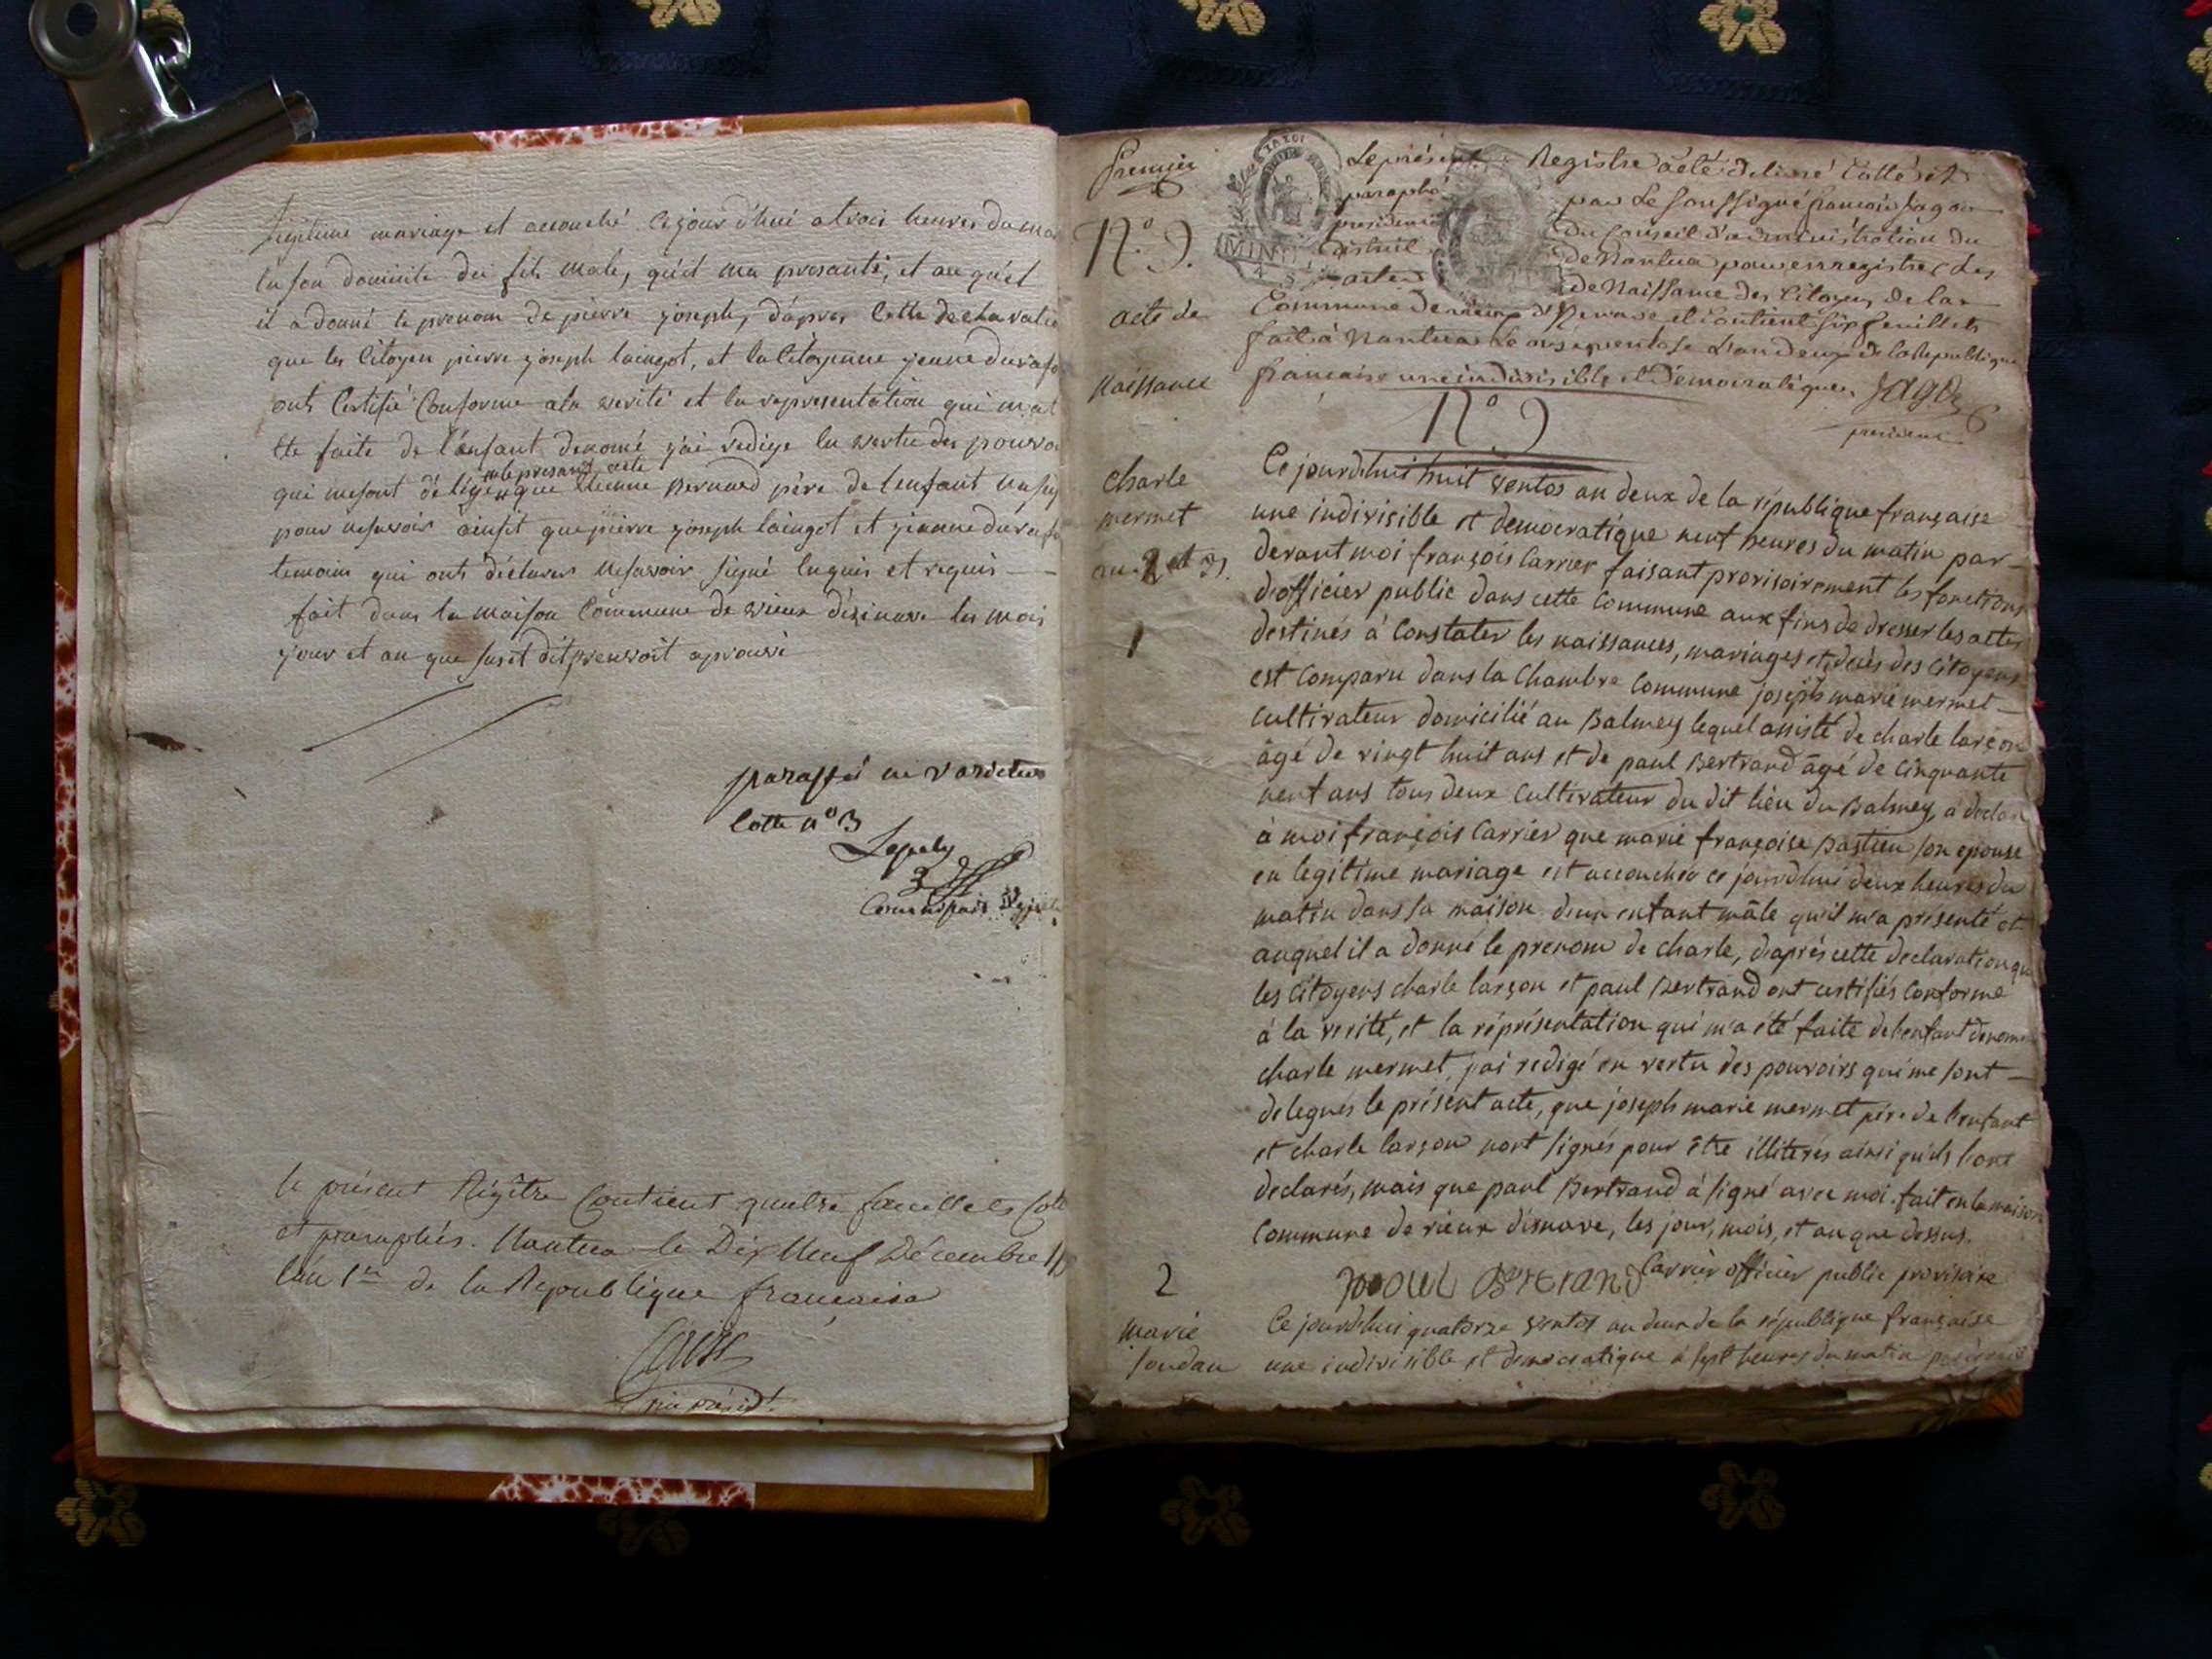 légitime mariage et accouché cejour d'hui a trois heures du ma
en son domicile dei fils male, qu'il ma presanté, et au quel
il a donné le prenom de pierre joseph, d'apres cette declaratio
que les Citoyen pierre joseph laingot, et la Citoyenne jeanne
onts Certifié Conforme ala verité et la representation qui mat
Ete faite de l'enfant denomé j'ai redige en vertu des pouvo
qui mesont délégé le presant acte que Bernard père de lenfant
pour nesavoir ainsit que pierre joseph laingot et jeanne
temoin qui onts déclarer nesavoir signé enquis et requis
fait dans la maison Commune de vieux dizinave les mois
jour et an que susit dit
paraffé ne varietur
Cotte n° 3
le présent Régitre Contient quatre feuillets Coté
et paraphés. Nantua le Dix Neuf Décembre
l'an 1er de la Republique francaise
président
Premier
Le présent Registre a été délivré Cotté et
paraphé par Le soussigné françois Jagot
président du Conseil d'administration du
district de Nantua pour enregistrer Les
actes de Naissance des Citoyens de la
Commune de vieux d'Izenave et Contient six feuillets
fait à Nantua Le onze pentose L'an deux de la Republique
francaise une indivisible et Démocratique. Jagot
président
N° 9.
acte de
Naissance
N° 9
charle
mermet
1
Ce jourdhui huit ventos an deux de la république française
une indivisible et democratique neuf heures du matin par-
devant moi françois Carrier faisant provisoirement les fonctions
d'officier public dans cette Commune aux fins de dresser les actes
destinés à Constater les naissances, mariages et décès des citoyens
est Comparu dans la Chambre Commune joseph marie mermet
cultivateur domicilié au Balmey lequel assisté de charle larçon
âgé de vingt huit ans et de paul Bertrand âgé de cinquante
neuf ans tous deux Cultivateur du dit lieu du Balmey, a declaré
à moi françois Carrier que marie françoise Bastien son epouse
en legitime mariage est accouchée ce jourdhui deux heures du
matin dans sa maison d'un enfant mâle qu'il m'a présenté et
auquel il a donné le prenom de charle, d'aprés cette declaration que
les citoyens charle larçon et paul Bertrand ont certifiés conforme
à la verité, et la réprésentation qui m'a été faite de l'enfant denomé
charle mermet, j'ai redigé en vertu des pouvoirs qui me sont
delegués le présent acte, que joseph marie mermet pére de l'enfant
et charle larçon n'ont signés pour être illiterés ainsi qu'ils l'ont
declarés, mais que paul Bertrand à signé avec moi. fait en la maison
Commune de vieux disnave, les jour, mois, et an que dessus.
paul Bertrand Carrier officier public provisoire
2
marie
Ce jourdhui quatorze ventos an deux de la république française
une indivisible et democratique à sept heures du matin pardevant